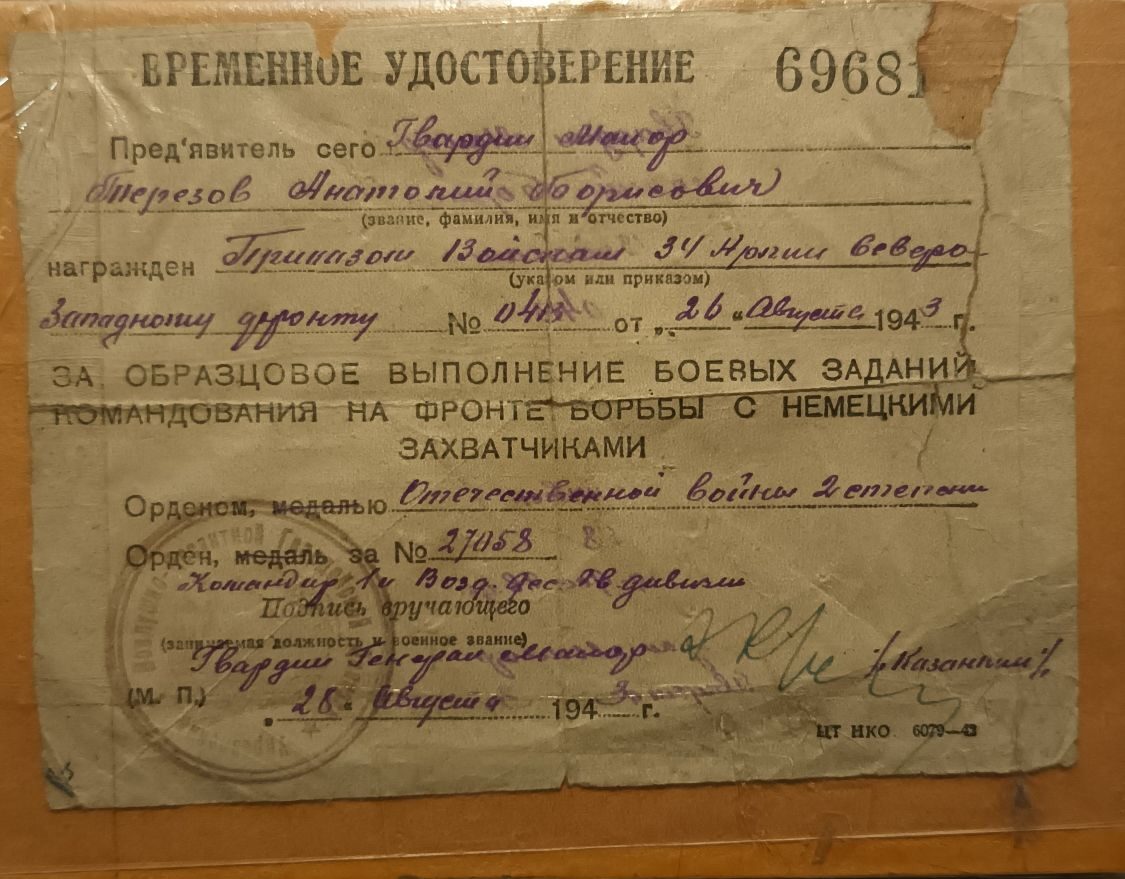 ВРЕМЕННОЕ УДОСТОВЕРЕНИЕ 69681
Пред'явитель сего Гвардии Майор
Терезов Анатолий Борисович
(звание, фамилия, имя и отчество)
награжден Приказом Войскам 34 Армии Северо-
(указом или приказом)
Западному фронту № от „ 26 “ Августа 1943 г.
ЗА ОБРАЗЦОВОЕ ВЫПОЛНЕНИЕ БОЕВЫХ ЗАДАНИЙ
КОМАНДОВАНИЯ НА ФРОНТЕ БОРЬБЫ С НЕМЕЦКИМИ
ЗАХВАТЧИКАМИ
Орденом, медалью Отечественной войны 2 степени
Орден, медаль за № 27058
Командир 1й Возд. дес. Гв. дивизии
Подпись вручающего
(занимаемая должность и военное звание)
Гвардии Генерал Майор /Казанкин/
(М. П.)
„ 28 “ Августа 1943 г.
ЦТ НКО 6079—43